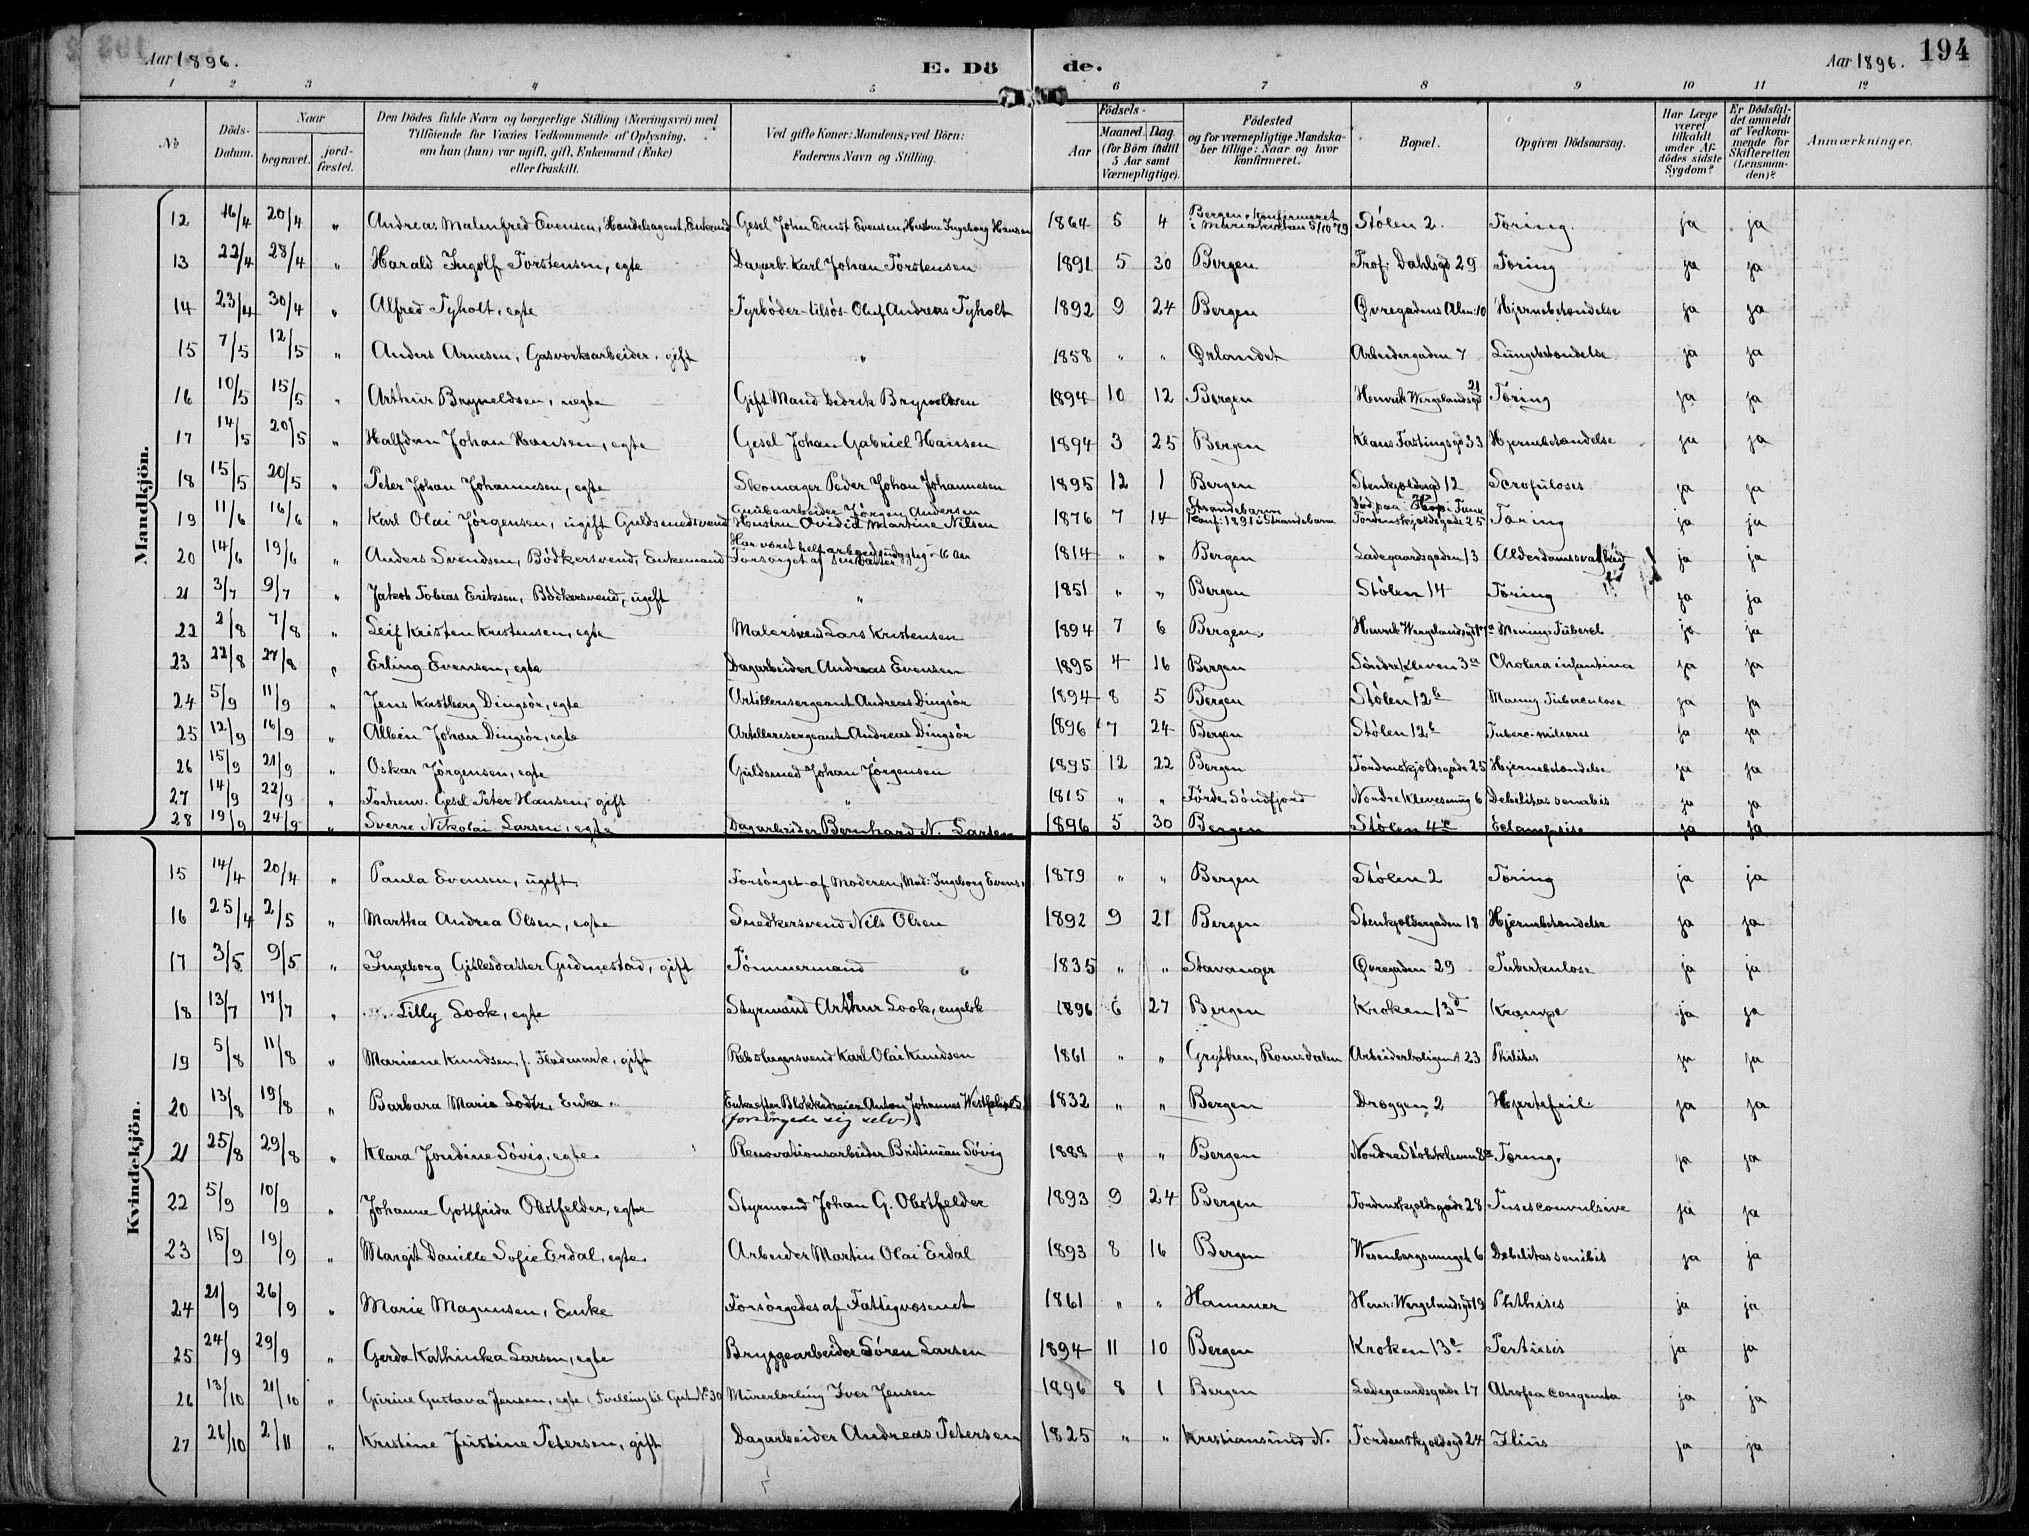 Aar 1896. E. Dö de. Aar 1896. 194
1 2 3 4 5 6 7 8 9 10 11 12
No Döds-Datum. Naar begravet. jord-fæstet. Den Dödes fulde Navn og borgerlige Stilling (Næringsvei) med Tilföiende for Voxnes Vedkommende af Oplysning, om han (hun) var ugift, gift, Enkemand (Enke) eller fraskilt. Ved gifte Koner: Mandens, ved Börn: Faderens Navn og Stilling. Födsels- Aar Maaned. Dag. (for Börn indtil 5 Aar samt Værnepligtige). Födested og for værnepligtige Mandskaber tillige: Naar og hvor konfirmeret. Bopæl. Opgiven Dödsaarsag. Har Læge været tilkaldt under Afdödes sidste Sygdom? Er Dödsfaldet anmeldt af Vedkommende for Skifteretten (Lensmanden)? Anmærkninger.
Mandkjön.
12 16/4 20/4 " Andreas Malmfred Evensen, Handelsagent, Enkemd Gesel John Ernst Evensen, Hustru Ingeborg Hansen 1864 5 4 Bergen, Konfirmeret i Mariakirken 5/10 79 Stølen 2. Tæring. ja ja
13 22/4 28/4 " Harald Ingolf Torstensen, egte Dagarb. Karl Johan Torstensen 1891 5 30 Bergen Prof: Dahlsgd 29 Tæring ja ja
14 23/4 30/4 " Alfred Tyholt, egte Fyrbøder tilsøs Oluf Andreas Tyholt 1892 9 24 Bergen Øvregadens Alm: 10 Hjernebetændelse ja ja
15 7/5 12/5 " Anders Arnesen, Gasverksarbeider, gift " 1858 " " Ørlandet Arbeidergaden 7 Lungebetændelse ja ja
16 10/5 15/5 " Arthur Bryneldsen, uegte Gift Mand Dedrik Bryneldsen 1894 10 12 Bergen Henrik Wergelandsgd 21 Tæring ja ja
17 14/5 20/5 " Halfdan Johan Hansen, egte Gesel Johan Gabriel Hansen 1894 3 25 Bergen Klaus Fastingsgd 33 Hjernebetændelse ja ja
18 15/5 20/5 " Peter Johan Johannesen, egte Skomager Peder Johan Johannesen 1895 12 1 Bergen Stenkjeldergd 12 Scrofuloses ja ja
19 11/6 16/6 " Karl Olai Jørgensen, ugift Guldsmedsvend Grubearbeider Jørgen Andersen Hustru Ovidia Martine Nilsen 1876 7 14 Strandebarm Konf: 1891 i Strandebarm Død paa Hop i Fane Tordenskjoldsgade 25 Tæring ja ja
20 14/6 19/6 " Anders Svendsen, Bødkersvend, Enkemand Har været helt arbeidsudygtig i 16 Aar Forsørget af sin Datter 1814 " " Bergen Ladegaardsgaden 13 Alderdomssvaghed ja ja
21 3/7 9/7 " Jakob Tobias Eriksen, Bødkersvend, ugift " 1851 " " Bergen Stølen 14 Tæring ja ja
22 2/8 7/8 " Leif Kristen Kristensen, egte Malersvend Lars Kristensen 1894 7 6 Bergen. Henrik Wergelandsgd 17a Mening: Tubercl ja ja
23 22/8 27/8 " Erling Evensen, egte Dagarbeider Andreas Evensen 1895 4 16 Bergen Søndre Kleven 3a Cholera infantina ja ja
24 5/9 11/9 " Jens Kastberg Dingsør, egte Artillerisergeant Andreas Dingsør 1894 8 5 Bergen Stølen 12b Mening Tuberculose ja ja
25 12/9 16/9 " Albein Johan Dingsør, egte Artillerisergeant Andreas Dingsør 1896 7 24 Bergen Stølen 12b Tuberc. miliaris ja ja
26 15/9 21/9 " Oskar Jørgensen, egte Guldsmed Johan Jørgensen 1895 12 22 Bergen Tordenskjoldsgade 25 Hjernebetændelse ja ja
27 14/9 22/9 " Forhenv. Gesel Peter Hansen, gift " 1815 " " Førde, Søndfjord Nordre Klevesmug 6 Debelitas senabis ja ja
28 19/9 24/9 " Sverre Nikolai Larsen, egte Dagarbeider Bernhard N. Larsen 1896 5 30 Bergen Stølen 4c Eclampsise ja ja
Kvindekjön.
15 14/4 20/4 " Paula Evensen, ugift. Forsørget af Moderen, Mad: Ingeborg Evens. 1879 " " Bergen Stølen 2 Tæring ja ja
16 25/4 2/5 " Martha Andrea Olsen, egte Snedkersvend Nils Olsen 1892 9 21 Bergen Stenkjeldergaden 18 Hjernebetændelse ja ja
17 3/5 9/5 " Ingeborg Gitlesdatter Gudmestad, gift Tømmermand 1835 " " Stavanger Øvregaden 29 Tuberkulose ja ja
18 13/7 17/7 " Lilly Look, egte Styrmand Arthur Look, engelsk 1896 6 27 Bergen Kroken 13d Krampe ja ja
19 5/8 11/8 " Mariane Knudsen, f. Flademark, gift Rebslagersvend Karl Olai Knudsen 1861 " " Grytten, Romsdalen Arbeiderboligens 23 Philitis ja ja
20 13/8 19/8 " Barbara Marie Lodtz, Enke. Enke efter Blokkedreier Anton Johannes Westfehold, (forsørgede sig selv) 1832 " " Bergen Dræggen 2 Hjertefeil ja ja
21 25/8 29/8 " Klara Jondine Søvig, egte. Renovationsarbeider Britinius Søvig 1888 " " Bergen Nordre Stølekleven 8a Tæring. ja ja
22 5/9 10/9 " Johanne Gottfrida Obstfelder, egte Styrmand Johan G. Obstfelder 1893 9 24 Bergen Tordenskjoldsgade 28 Tusesconvulsive ja ja
23 15/9 19/9 " Margit Danille Sofie Erdal, egte. Arbeider Martin Olai Erdal 1893 8 16 Bergen Wesenbergsmuget 6 Debelitas senibis ja ja
24 21/9 26/9 " Marie Magnusen, Enke Forsørgedes af Fattigvæsenet 1861 " " Hammer Henr: Wergelandsgd 19 Phthisis ja ja
25 24/9 29/9 " Gerda Kathinka Larsen, egte Bryggearbeider Søren Larsen 1894 11 10 Bergen Kroken 13a Pertusis ja ja
26 13/10 21/10 " Gurine Gustava Jensen, egte (Tvilling til Gut No 30 Murerlærling Iver Jensen 1896 8 1 Bergen Ladegaardsgade 17 Atrofea congenta ja ja
27 26/10 2/11 " Kristine Justine Petersen, gift Dagarbeider Andreas Petersen 1825 " " Kristiansund N. Tordenskjoldsgd 24 Ilius ja ja